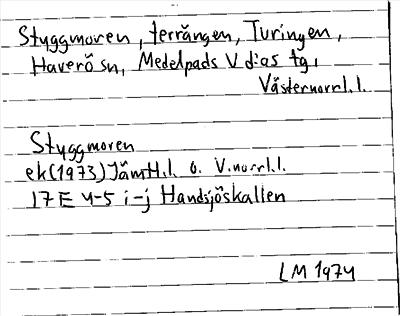 Styggmoren, terrängen, Turingen,
Haverö sn, Medelpads V d:as tg,
Västernorrl.l.
Styggmoren
ek(1973) Jämtl.l. o. V.norrl.l.
17E 4-5 i-j Handsjöskallen
LM 1974